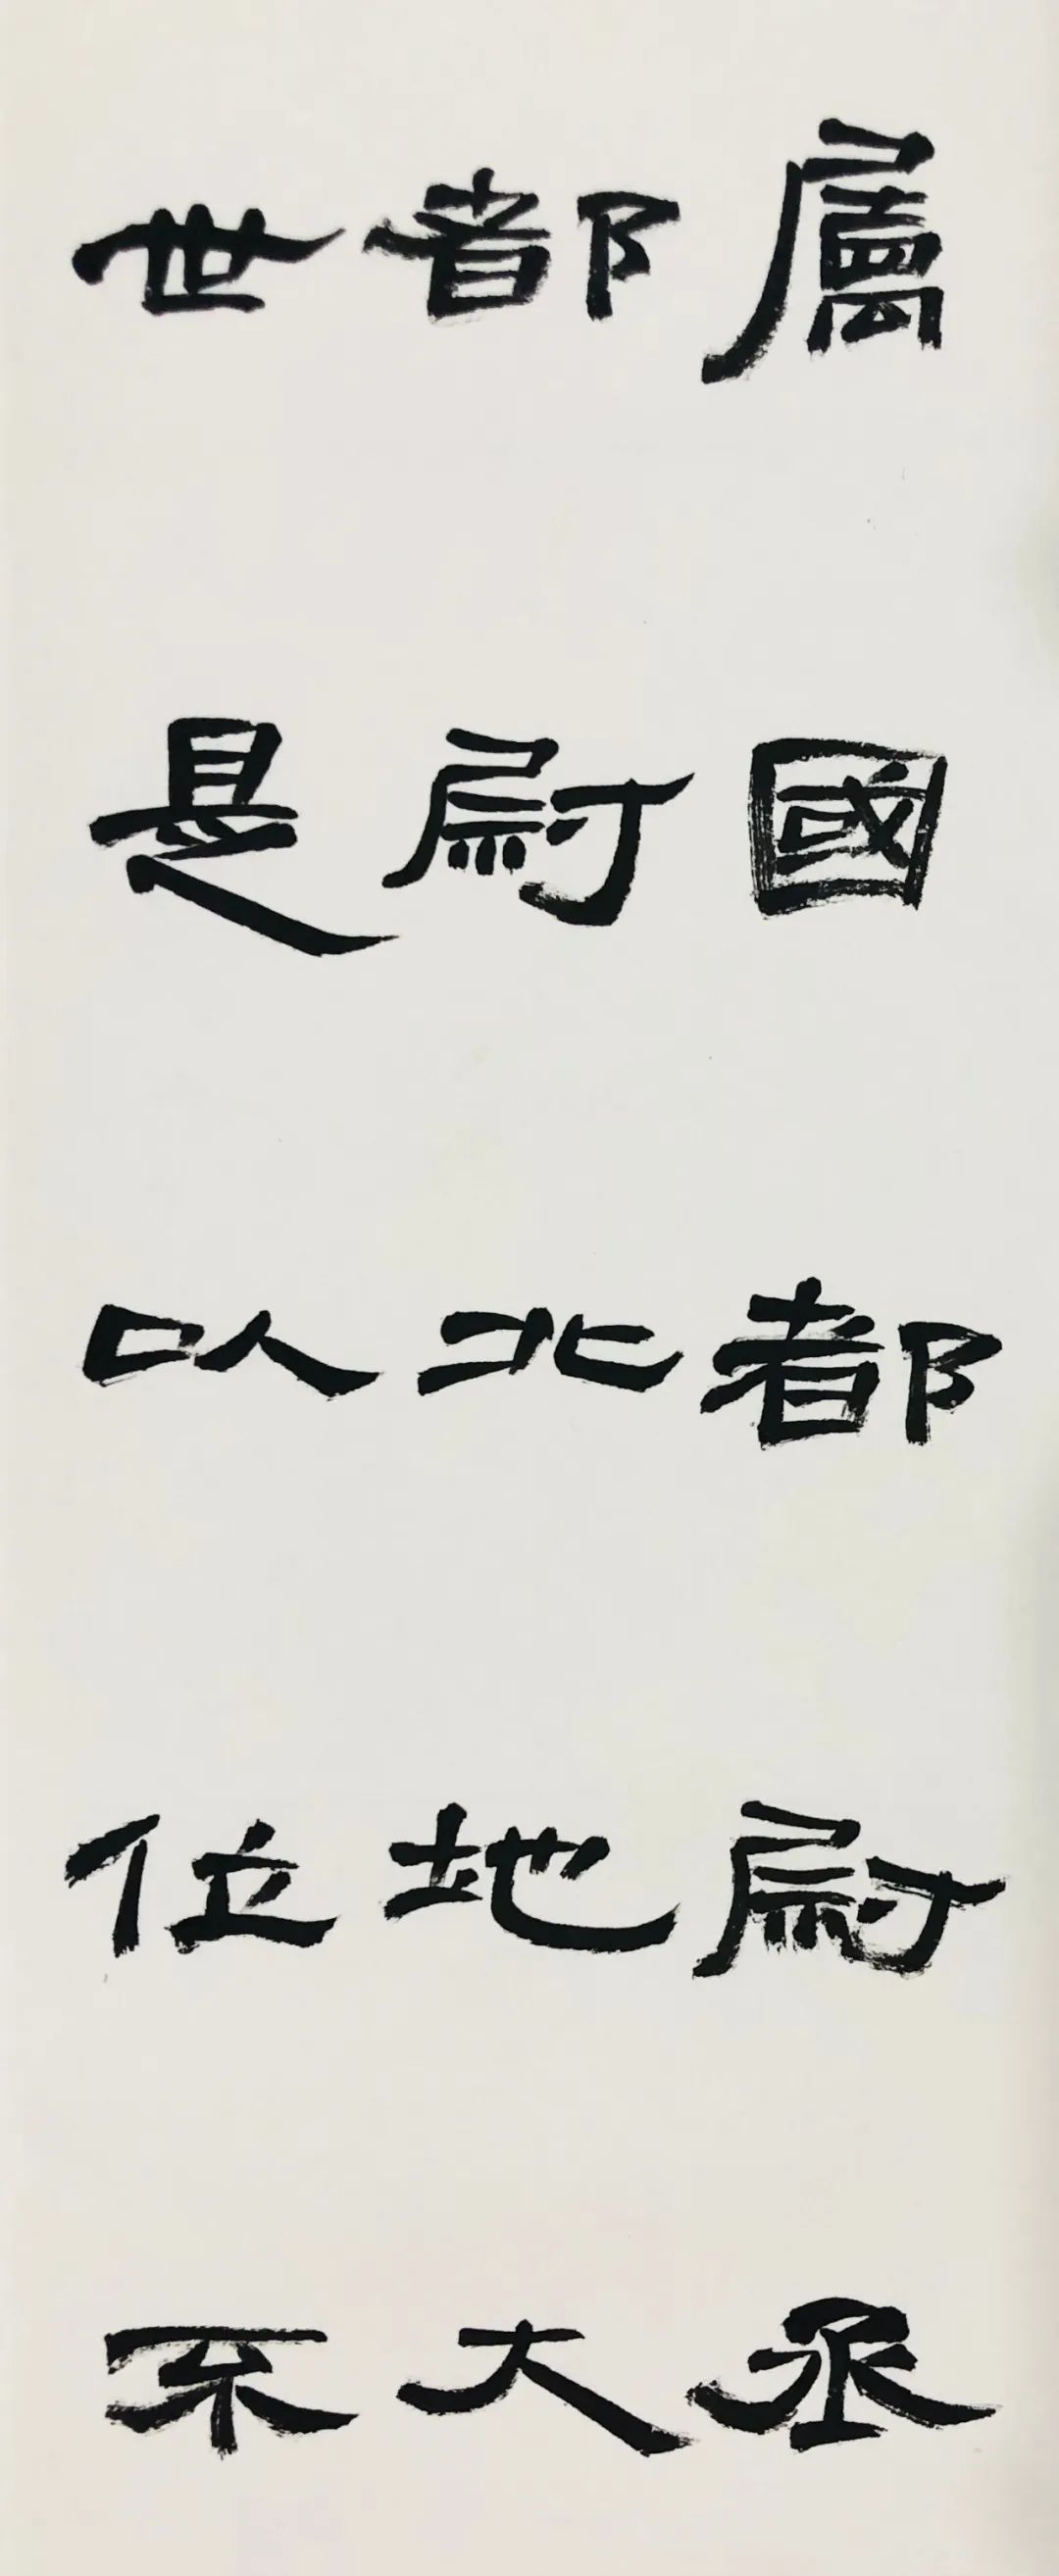 屬國都尉丞
都尉北地大
世是以位不